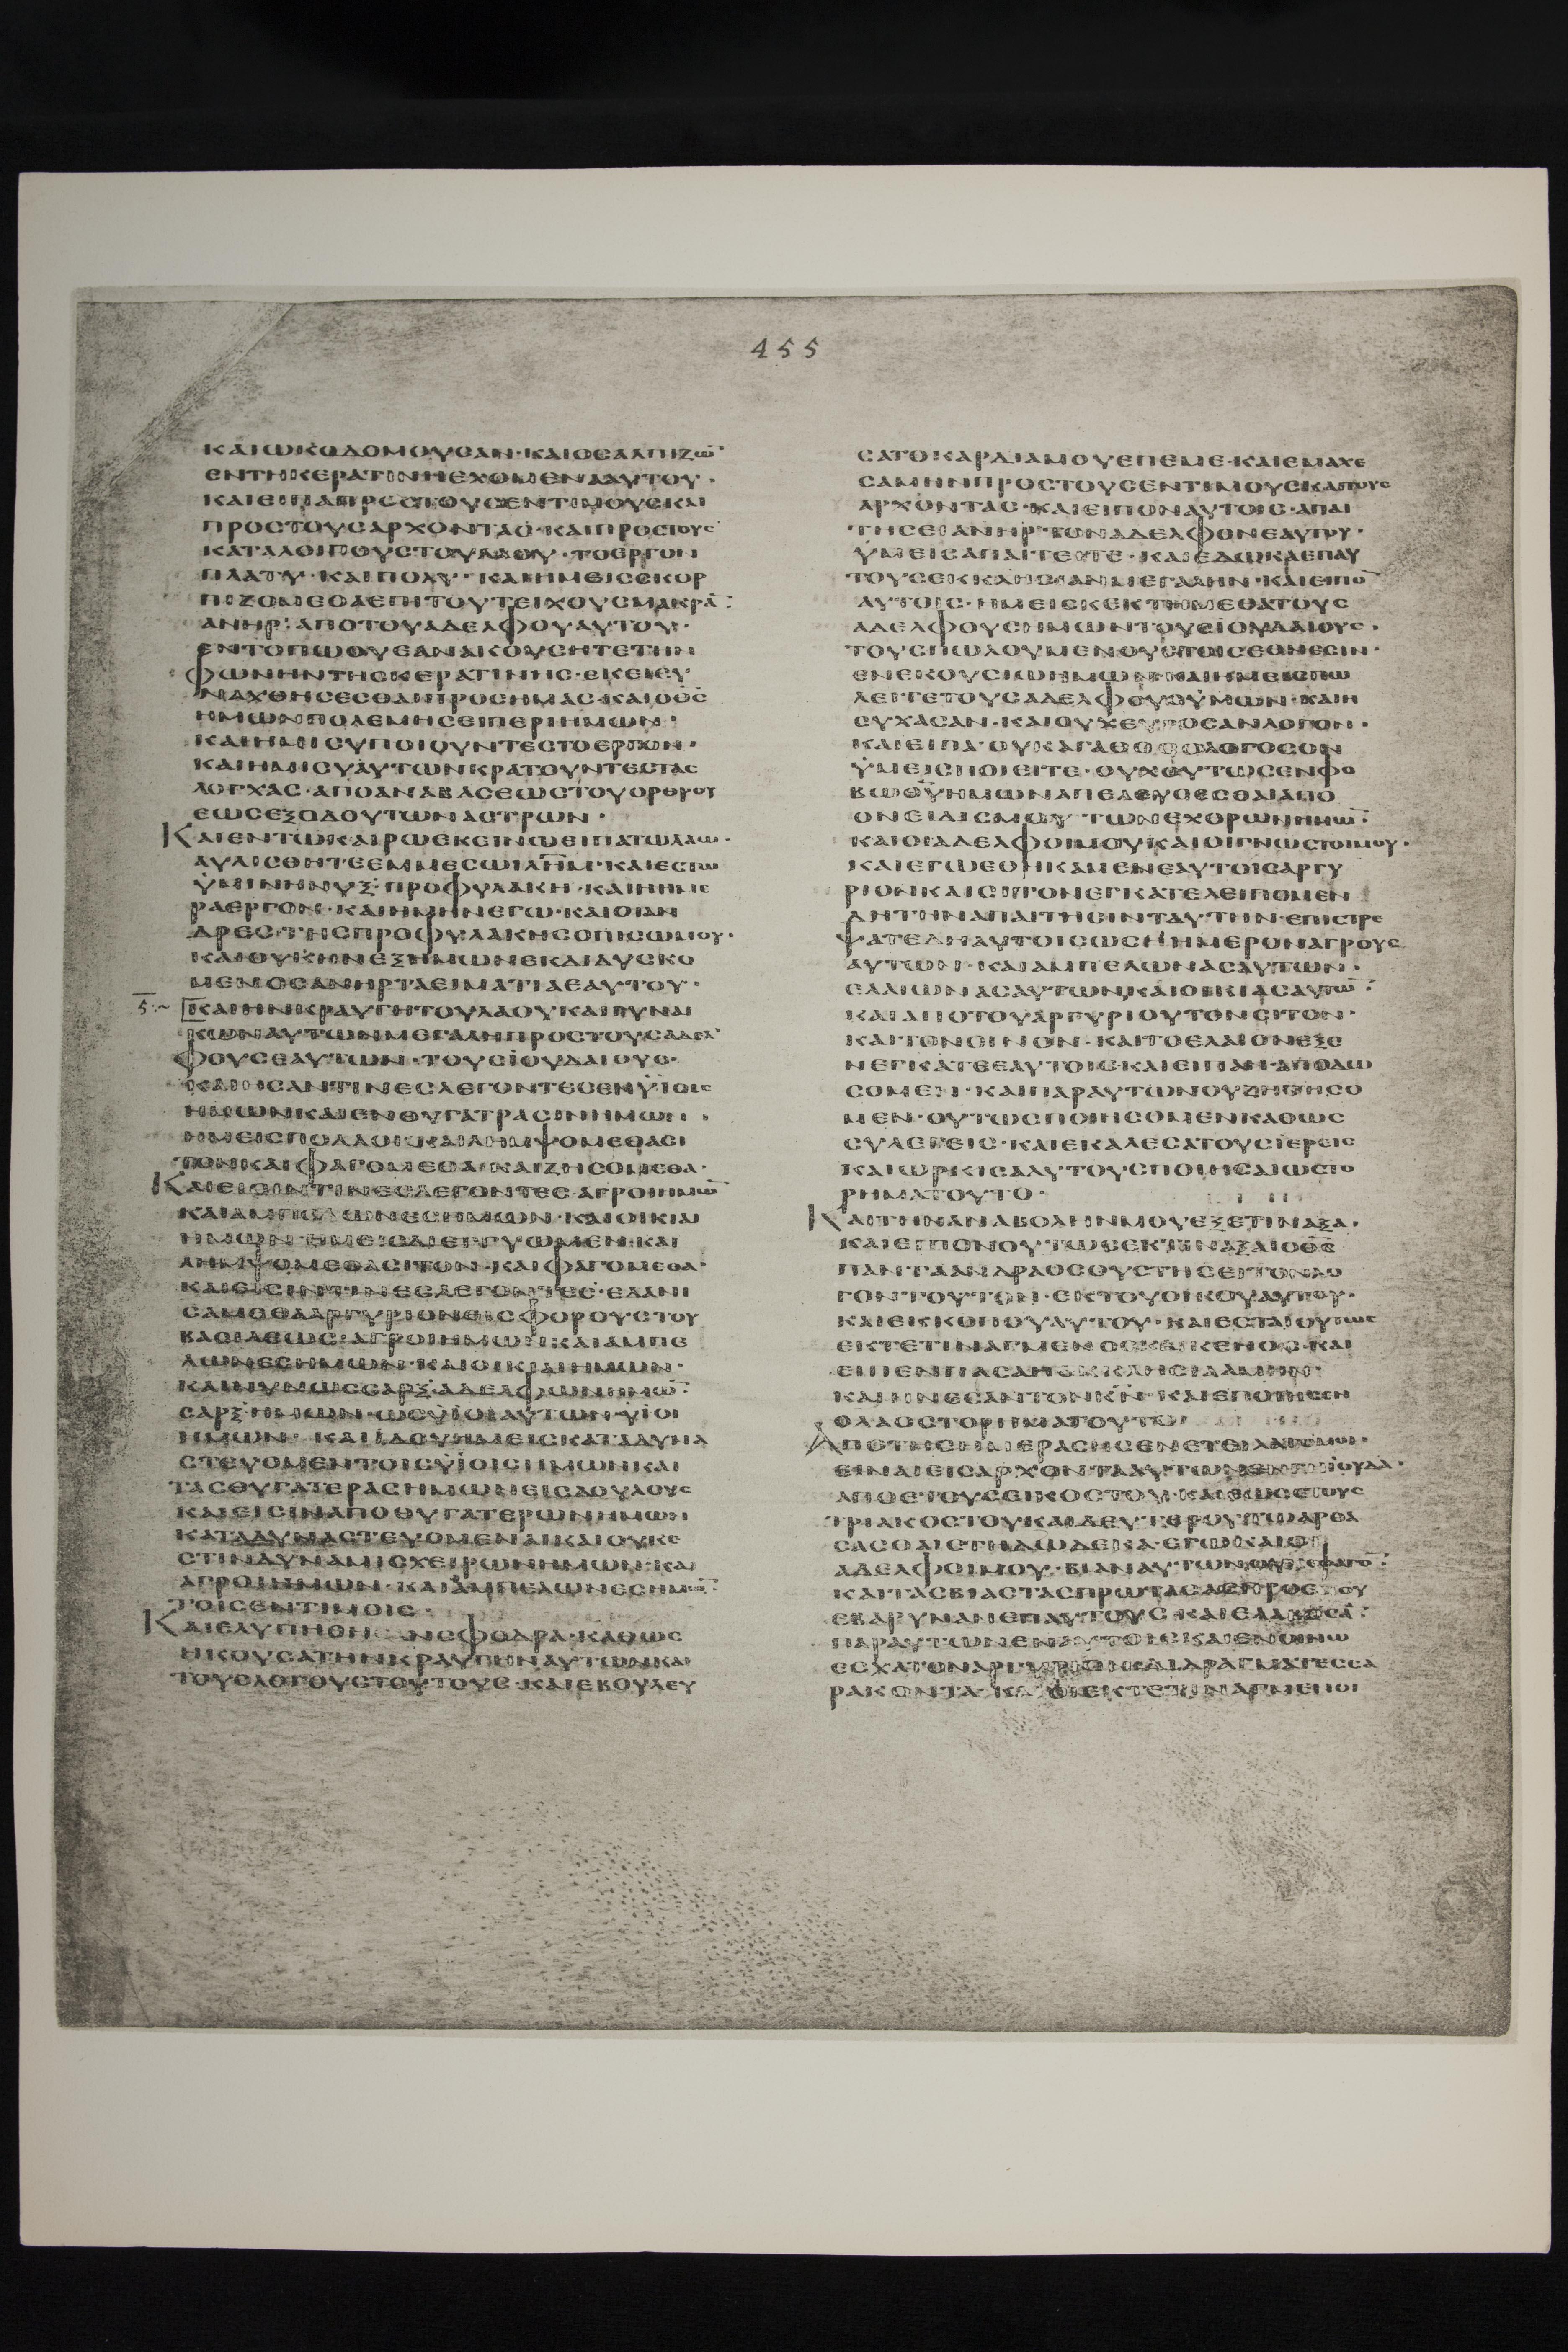 455
ΚΑΙΩΚΟΔΟΜΟΥϹΑΝ·ΚΑΙΟϹΑΛΠΙΖΩ̅
ΕΝΤΗΚΕΡΑΤΙΝΗΕΧΟΜΕΝΑΑΥΤΟΥ·
ΚΑΙΕΙΠΑΠΡΟϹΤΟΥϹΕΝΤΙΜΟΥϹΚΑΙ
ΠΡΟϹΤΟΥϹΑΡΧΟΝΤΑϹ·ΚΑΙΠΡΟϹΤΟΥϹ
ΚΑΤΑΛΟΙΠΟΥϹΤΟΥΛΑΟΥ·ΤΟΕΡΓΟΝ
ΠΛΑΤΥ·ΚΑΙΠΟΛΥ·ΚΑΙΗΜΕΙϹϹΚΟΡ
ΠΙΖΟΜΕΘΑΕΠΙΤΟΥΤΕΙΧΟΥϹΜΑΚΡΑ̅:
ΑΝΗΡ·ΑΠΟΤΟΥΑΔΕΛΦΟΥΑΥΤΟΥ·
ΕΝΤΟΠΩΟΥΕΑΝΑΚΟΥϹΗΤΕΤΗΝ
ΦΩΝΗΝΤΗϹΚΕΡΑΤΙΝΗϹ·ΕΚΕΙϹΥ
ΝΑΧΘΗϹΕϹΘΑΙΠΡΟϹΗΜΑϹ·ΚΑΙΟΘ̅Ϲ̅
ΗΜΩΝΠΟΛΕΜΗϹΕΙΠΕΡΙΗΜΩΝ·
ΚΑΙΗΜΙϹΥΠΟΙΟΥΝΤΕϹΤΟΕΡΓΟΝ·
ΚΑΙΗΜΙϹΥΑΥΤΩΝΚΡΑΤΟΥΝΤΕϹΤΑϹ
ΛΟΓΧΑϹ·ΑΠΟΑΝΑΒΑϹΕΩϹΤΟΥΟΡΘΡΟΥ
ΕΩϹΕΞΟΔΟΥΤΩΝΑϹΤΡΩΝ·
ΚΑΙΕΝΤΩΚΑΙΡΩΕΚΕΙΝΩΕΙΠΑΤΩΛΑΩ·
ΑΥΛΙϹΘΗΤΕΕΜΜΕϹΩΙΛΗ̅Μ̅·ΚΑΙΕϹΤΩ
ΫΜΙΝΗΝΥΞ·ΠΡΟΦΥΛΑΚΗ·ΚΑΙΗΗΜΕ
ΡΑΕΡΓΟΝ·ΚΑΙΗΜΗΝΕΓΩ·ΚΑΙΟΙΑΝ
ΔΡΕϹ·ΤΗϹΠΡΟΦΥΛΑΚΗϹΟΠΙϹΩΜΟΥ·
ΚΑΙΟΥΚΗΝΕΞΗΜΩΝΕΚΔΙΔΥϹΚΟ
ΜΕΝΟϹΑΝΗΡΤΑΕΙΜΑΤΙΑΕΑΥΤΟΥ·
ΚΑΙΗΝΚΡΑΥΓΗΤΟΥΛΑΟΥΚΑΙΓΥΝΑΙ
ΚΩΝΑΥΤΩΝΜΕΓΑΛΗΠΡΟϹΤΟΥϹΑΔΕΛ
ΦΟΥϹΕΑΥΤΩΝ·ΤΟΥϹΪΟΥΔΑΙΟΥϹ·
ΚΑΙΗϹΑΝΤΙΝΕϹΛΕΓΟΝΤΕϹΕΝΫΙΟΙϹ
ΗΜΩΝΚΑΙΕΝΘΥΓΑΤΡΑϹΙΝΗΜΩΝ·
ΗΜΕΙϹΠΟΛΛΟΙ·ΚΑΙΛΗΜΨΟΜΕΘΑϹΙ
ΤΟΝΚΑΙΦΑΓΟΜΕΘΑ·ΚΑΙΖΗϹΟΜΕΘΑ·
ΚΑΙΕΙϹΙΝΤΙΝΕϹΛΕΓΟΝΤΕϹ·ΑΓΡΟΙΗΜΩ̅
ΚΑΙΑΜΠΕΛΩΝΕϹΗΜΩΝ·ΚΑΙΟΙΚΙΑΙ
ΗΜΩΝ·ΗΜΕΙϹΔΙΕΓΓΥΩΜΕΝ·ΚΑΙ
ΛΗΜΨΟΜΕΘΑϹΙΤΟΝ·ΚΑΙΦΑΓΟΜΕΘΑ·
ΚΑΙΕΙϹΙΝΤΙΝΕϹΛΕΓΟΝΤΕϹ·ΕΔΑΝΙ
ϹΑΜΕΘΑΑΡΓΥΡΙΟΝΕΙϹΦΟΡΟΥϹΤΟΥ
ΒΑϹΙΛΕΩϹ·ΑΓΡΟΙΗΜΩΝ·ΚΑΙΑΜΠΕ
ΛΩΝΕϹΗΜΩΝ·ΚΑΙΟΙΚΙΑΙΗΜΩΝ·
ΚΑΙΝΥΝΩϹϹΑΡΞ·ΑΔΕΛΦΩΝΗΜΩ̅:
ϹΑΡΞ·ΗΜΩΝ·ΩϹΫΙΟΙΑΥΤΩΝ·ΫΙΟΙ
ΗΜΩΝ·ΚΑΙΪΔΟΥΗΜΕΙϹΚΑΤΑΔΥΝΑ
ϹΤΕΥΟΜΕΝΤΟΙϹΫΙΟΙϹΗΜΩΝΚΑΙ
ΤΑϹΘΥΓΑΤΕΡΑϹΗΜΩΝΕΙϹΔΟΥΛΟΥϹ
ΚΑΙΕΙϹΙΝΑΠΟΘΥΓΑΤΕΡΩΝΗΜΩΝ
ΚΑΤΑΔΥΝΑϹΤΕΥΟΜΕΝΑΙΚΑΙΟΥΚΕ
ϹΤΙΝΔΥΝΑΜΙϹΧΕΙΡΩΝΗΜΩΝ·ΚΑΙ
ΑΓΡΟΙΗΜΩΝ·ΚΑΙΑΜΠΕΛΩΝΕϹΗΜΩ̅:
ΤΟΙϹΕΝΤΙΜΟΙϹ·
ΚΑΙΕΛΥΠΗΘΗΝϹΦΟΔΡΑ·ΚΑΘΩϹ
ΗΚΟΥϹΑΤΗΝΚΡΑΥΓΗΝΑΥΤΩΝΚΑΙ
ΤΟΥϹΛΟΓΟΥϹΤΟΥΤΟΥϹ·ΚΑΙΕΒΟΥΛΕΥ
ϹΑΤΟΚΑΡΔΙΑΜΟΥΕΠΕΜΕ·ΚΑΙΕΜΑΧΕ
ϹΑΜΗΝΠΡΟϹΤΟΥϹΕΝΤΙΜΟΥϹΚΑΙΤΟΥϹ
ΑΡΧΟΝΤΑϹ·ΚΑΙΕΙΠΟΝΑΥΤΟΙϹ·ΑΠΑΙ
ΤΗϹΕΙΑΝΗΡ·ΤΟΝΑΔΕΛΦΟΝΕΑΥΤΟΥ·
ΫΜΕΙϹΑΠΑΙΤΕΙΤΕ·ΚΑΙΕΔΩΚΑΕΠΑΥ
ΤΟΥϹΕΚΚΛΗϹΙΑΝΜΕΓΑΛΗΝ·ΚΑΙΕΙΠΟ̅
ΑΥΤΟΙϹ·ΗΜΕΙϹΚΕΚΤΗΜΕΘΑΤΟΥϹ
ΑΔΕΛΦΟΥϹΗΜΩΝΤΟΥϹΪΟΥΔΑΙΟΥϹ·
ΤΟΥϹΠΩΛΟΥΜΕΝΟΥϹΤΟΙϹΕΘΝΕϹΙΝ·
ΕΝΕΚΟΥϹΙΩΗΜΩΝ·ΚΑΙΗΜΕΙϹΠΩ
ΛΕΙΤΕΤΟΥϹΑΔΕΛΦΟΥϹΫΜΩΝ·ΚΑΙΗ
ϹΥΧΑϹΑΝ·ΚΑΙΟΥΧΕΥΡΟϹΑΝΛΟΓΟΝ·
ΚΑΙΕΙΠΑ·ΟΥΚΑΓΑΘΟϹΟΛΟΓΟϹΟΝ
ΫΜΕΙϹΠΟΙΕΙΤΕ·ΟΥΧΟΥΤΩϹΕΝΦΟ
ΒΩΘ̅Υ̅ΗΜΩΝΑΠΕΛΕΥϹΕϹΘΑΙΑΠΟ
ΟΝΕΙΔΙϹΜΟΥ·ΤΩΝΕΧΘΡΩΝΗΜΩ̅:
ΚΑΙΟΙΑΔΕΛΦΟΙΜΟΥΚΑΙΟΙΓΝΩϹΤΟΙΜΟΥ·
ΚΑΙΕΓΩΕΘΗΚΑΜΕΝΕΑΥΤΟΙϹΑΡΓΥ
ΡΙΟΝΚΑΙϹΙΤΟΝΕΓΚΑΤΕΛΕΙΠΟΜΕΝ
ΔΗΤΗΝΑΠΑΙΤΗϹΙΝΤΑΥΤΗΝ·ΕΠΙϹΤΡΕ
ΨΑΤΕΔΗΑΥΤΟΙϹΩϹϹΗΜΕΡΟΝΑΓΡΟΥϹ
ΑΥΤΩΝ·ΚΑΙΑΜΠΕΛΩΝΑϹΑΥΤΩΝ·
ΕΛΑΙΩΝΑϹΑΥΤΩΝ,ΚΑΙΟΙΚΙΑϹΑΥΤΩ̅:
ΚΑΙΑΠΟΤΟΥΑΡΓΥΡΙΟΥΤΟΝϹΙΤΟΝ·
ΚΑΙΤΟΝΟΙΝΟΝ·ΚΑΙΤΟΕΛΑΙΟΝΕΞΕ
ΝΕΓΚΑΤΕΕΑΥΤΟΙϹΚΑΙΕΙΠΑΝ·ΑΠΟΔΩ
ϹΟΜΕΝ·ΚΑΙΠΑΡΑΥΤΩΝΟΥΖΗΤΗϹΟ
ΜΕΝ·ΟΥΤΩϹΠΟΙΗϹΟΜΕΝΚΑΘΩϹ
ϹΥΛΕΓΕΙϹ·ΚΑΙΕΚΑΛΕϹΑΤΟΥϹΪΕΡΕΙϹ
ΚΑΙΩΡΚΙϹΑΑΥΤΟΥϹΠΟΙΗϹΑΙΩϹΤΟ
ΡΗΜΑΤΟΥΤΟ·
ΚΑΙΤΗΝΑΝΑΒΟΛΗΝΜΟΥΕΞΕΤΙΝΑΞΑ·
ΚΑΙΕΙΠΟΝΟΥΤΩϹΕΚΤΙΝΑΞΑΙΟΘ̅Ϲ̅
ΠΑΝΤΑΑΝΔΡΑΟϹΟΥϹΤΗϹΕΙΤΟΝΛΟ
ΓΟΝΤΟΥΤΟΝ·ΕΚΤΟΥΟΙΚΟΥΑΥΤΟΥ·
ΚΑΙΕΚΚΟΠΟΥΑΥΤΟΥ·ΚΑΙΕϹΤΑΙΟΥΤΩϹ
ΕΚΤΕΤΙΝΑΓΜΕΝΟϹΚΑΙΚΕΝΟϹ·ΚΑΙ
ΕΙΠΕΝΠΑϹΑΗΕΚΚΛΗϹΙΑΑΜΗΝ·
ΚΑΙΗΝΕϹΑΝΤΟΝΚ̅Ν̅·ΚΑΙΕΠΟΙΗϹΕΝ
ΟΛΑΟϹΤΟΡΗΜΑΤΟΥΤΟ
ΑΠΟΤΗϹΗΜΕΡΑϹΗϹΕΝΕΤΕΙΛΑΤΟΜΟΙ·
ΕΙΝΑΙΕΙϹΑΡΧΟΝΤΑΑΥΤΩΝΕΝΓΗΪΟΥΔΑ·
ΑΠΟΕΤΟΥϹΕΙΚΟϹΤΟΥ·ΚΑΙΕΩϹΕΤΟΥϹ
ΤΡΙΑΚΟϹΤΟΥΚΑΙΔΕΥΤΕΡΟΥΤΩΑΡΘΑ
ϹΑϹΘΑΙ ΕΤΗΔΩΔΕΚΑ·ΕΓΩΚΑΙΟΙ
ΑΔΕΛΦΟΙΜΟΥ·ΒΙΑΝΑΥΤΩΝΟΥΚΕΦΑΓΟ̅:
ΚΑΙΤΑϹΒΙΑϹΤΑϹΠΡΩΤΑϹ
ΕΒΑΡΥΝΑΝΕΠΑΥΤΟΥϹ·ΚΑΙΕΛΑΒΟϹΑ̅:
ΠΑΡΑΥΤΩΝΕΝΑΡΤΟΙϹΚΑΙΕΝΟΙΝΩ
ΕϹΧΑΤΟΝΑΡΓΥΡΙΟΝΔΙΔΡΑΓΜΑΤΕϹϹΑ
ΡΑΚΟΝΤΑ·ΚΑΙΟΙΕΚΤΕΤΙΝΑΓΜΕΝΟΙ